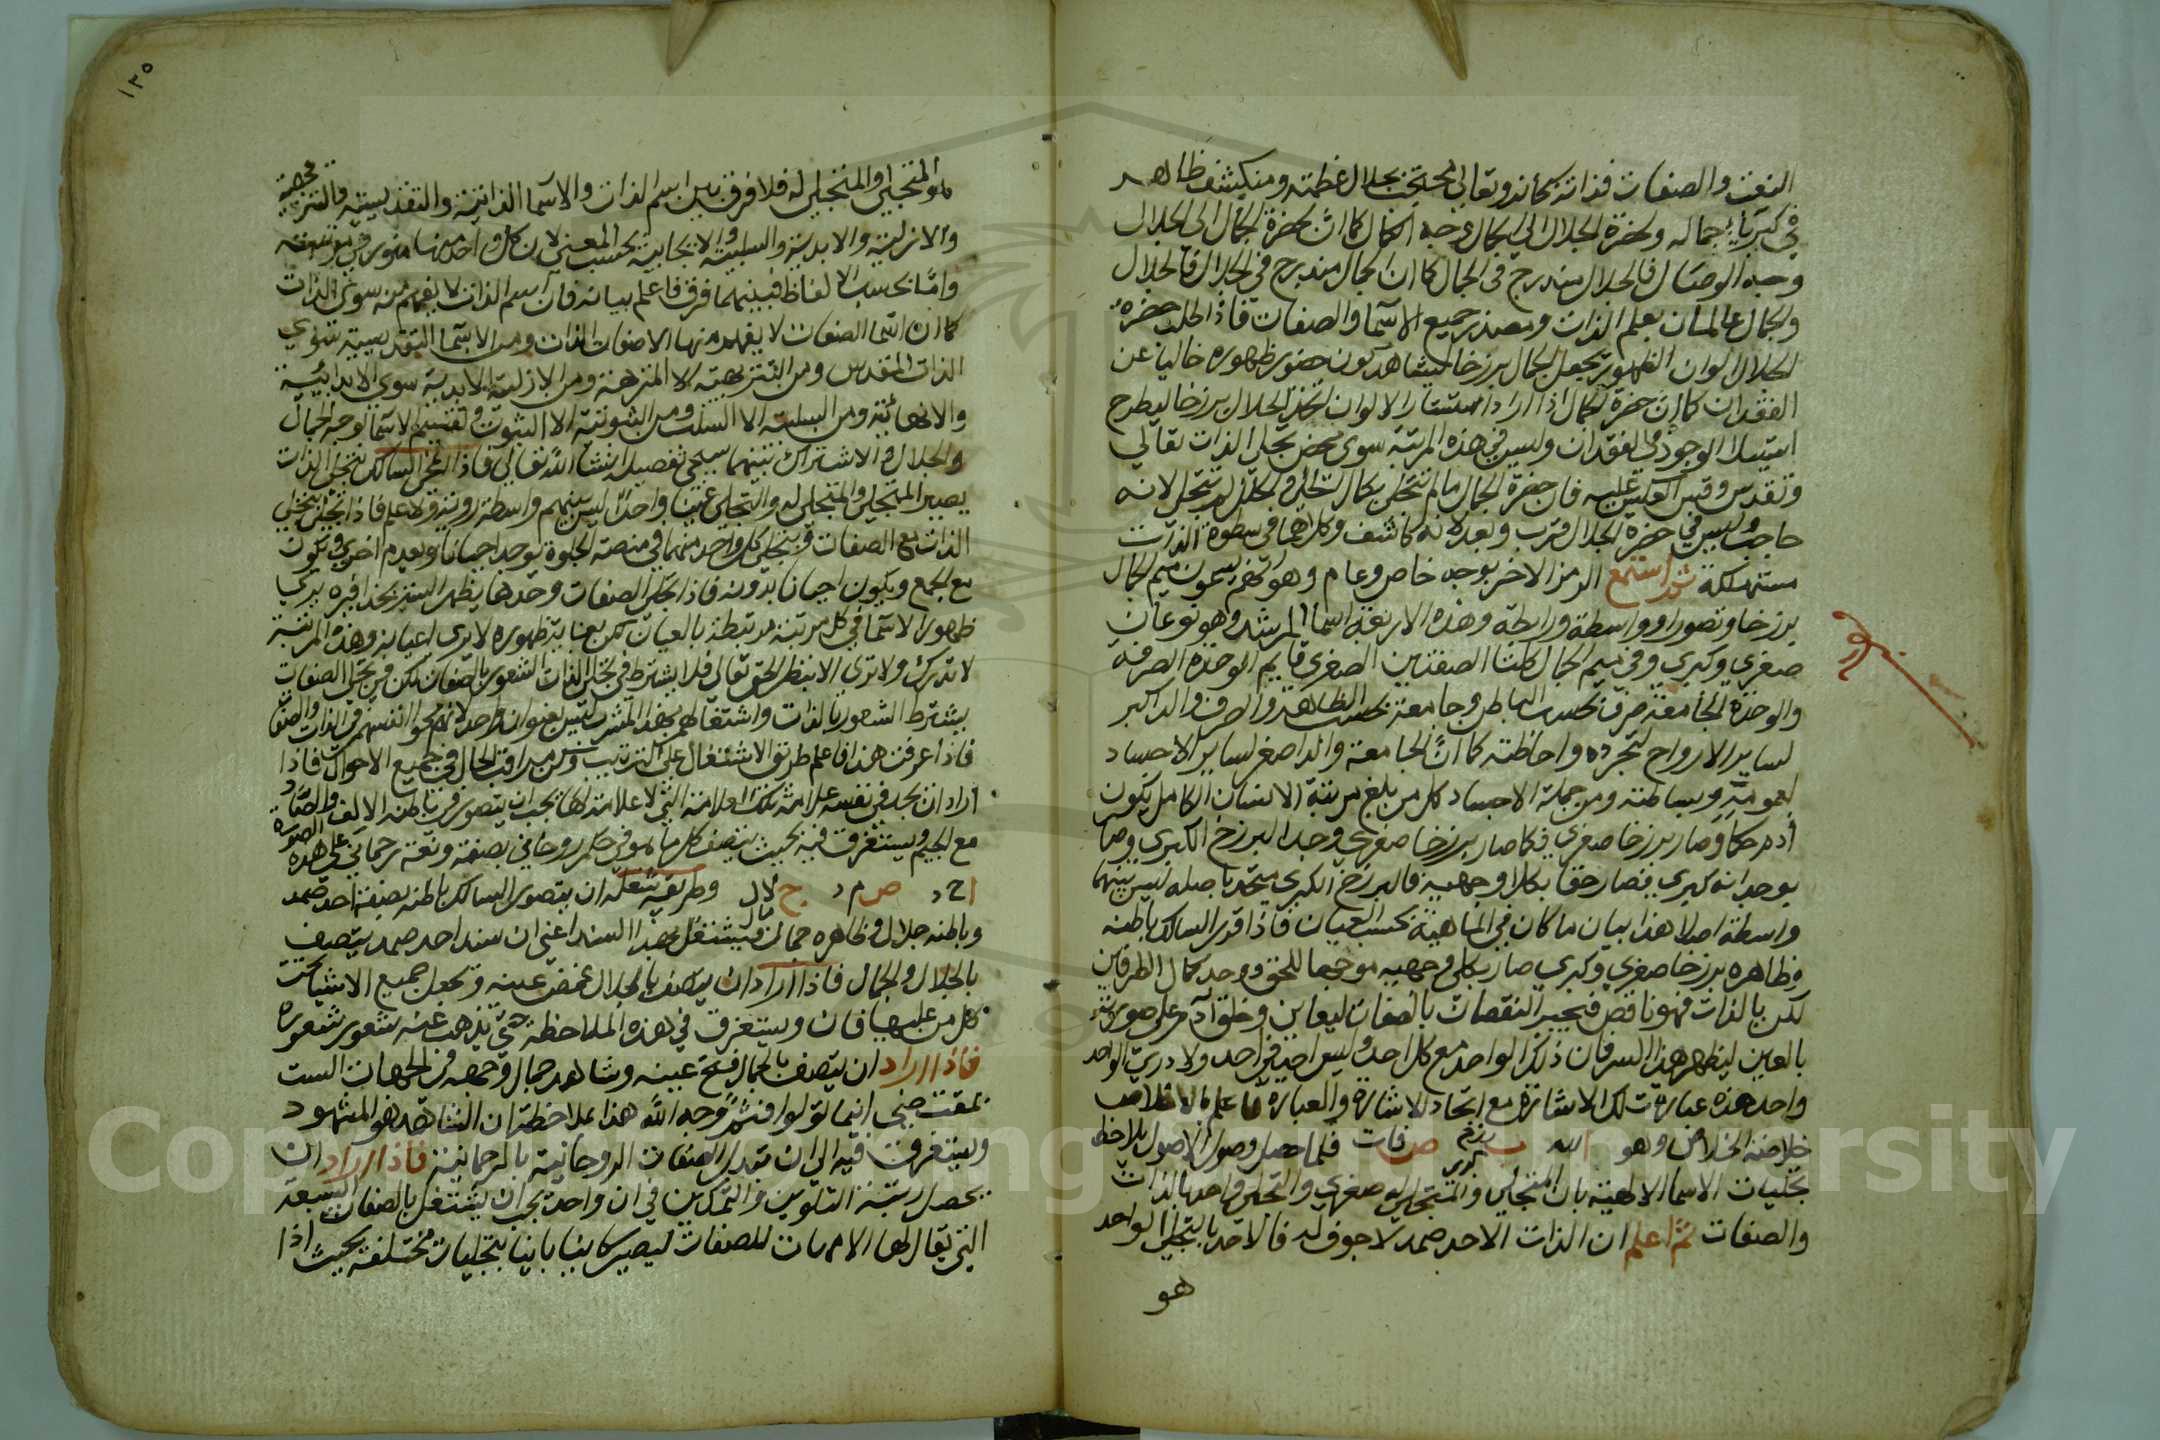 النعت والصفات فذاته سبحانه وتعالى محتجب بجلال عظمته ومنكشف ظاهر
في كبرياء جماله ولحضرة الجلال الى الجمال وجه الكمال كما ان لحضرة الجمال الى الجلال
وجه الوصال فالجلال مندرج في الجمال كما ان الجمال مندرج في الجلال فالجلال
والجمال عالمان بعلم الذات ومصدر جميع الاسما والصفات فاذا طلب حضرة
الجلال الوان الظهور يجعل الجمال برزخا ليشاهد كون حضور ظهوره خاليا عن
الفقدان كما ان حضرة الجمال اذا اراد استتار الالوان اتخذ الجلال برزخا ليطرح
استيلا الوجود في الفقدان وليس في هذه المرتبة سوى محض تجلى الذات تعالى
وتقدس وقس العكس عليه فان حضرة الجمال مالم تتجلى بكمال التجلى والجلال لم تتجل لانه
حاجب وليس في حضرة الجلال قرب وبعد لانه كاشف وكلاهما في سطوة الذات
مستهلكة ثم استمع الرمز الاخر بوجه خاص وعام وهو انهم يسمون ميم الجمال
برزخا وتصورا وواسطة ورابطة وهذه الاربعة اسما المرشد وهو نوعان
صغرى وكبرى وفي ميم الجمال كلتا الصفتين الصغرى قايم الوحدة الصرفة
والوحدة الجامعة صرف بحسب الباطن وجامعة بحسب الظاهر والصرف والد اكبر
لساير الارواح لتجرده واحاطته كما ان الجامعة والد اصغر لساير الاجساد
لعموميته وبساطته ومن جملة الاجساد كل من بلغ مرتبة الانسان الكامل يكون
آدم حكما وصار برزخا صغرى فكما صار برزخا صغرى وجد البرزخ الكبرى وصار
بوجدانه كبرى فصار حقا بكلا وجهيه فالبرزخ الكبرى متحد باصله ليس بينهما
واسطة اصلا هذا بيان ما كان في الماهية بحسب العيان فاذا قرى السالك باطنه
وظاهره برزخا صغرى وكبرى صار بكلي وجهيه موجها للحق ووجد كمال الطرفين
لكن بالذات فهو ناقص فيجبر النقصان بالصفات ليعاين وخلق آدم على صورته
بالعين ليظهر هذا السر فان ذلك الواحد مع كل احد وليس احد في احد ولا درى الواحد
واحد هذه عبارة تلك الاشارة مع اتحاد الاشارة والعبارة فاعلم بالاخلاص
خلاصة الخلاص وهو الله برزخ كبرى صفات فلما حصل وصول الاصول يلاحظ
تجليات الاسما الالهية بان المتجلى والمتجلى له صغرى والتجلى واحد بالذات
والصفات ثم اعلم ان الذات الاحد صمد لا جوف له فالاحد بالتجلي الواحد
هو
١٣٥
هو المتجلي والمتجلى له فلا فرق بين اسم الذات والاسما الذاتية والتقديسية والتنزيهية
والازلية والابدية والسلبية والايجابية بحسب المعنى لان كل واحد منها منور في مرتبته
واما بحسب الالفاظ فبينهما فرق فاعلم بيانه فان اسم الذات لا يفهم منه سوى الذات
كما ان اسما الصفات لا يفهم منها الا صفات الذات ومن الاسما التقديسية سوى
الذات المقدس ومن التنزيهية الا المنزهة ومن الازلية الابدية سوى الابدائية
والانهائية ومن السلبية الا السلب ومن الثبوتية الا الثبوت وتقسيم الاسما لوجه الجمال
والجلال والاشتراك بينهما سيجي تفصيله ان شا الله تعالى فاذا انحى السالك بتجلى الذات
يصير المتجلي والمتجلى له والتجلى عينا واحدا ليس بينهم واسطة رويته ولا علم فاذا تجلى بتجلى
الذات مع الصفات وبتجلى كل واحد منهما في منصة الجلوة يوجد احيانا ويعدم اخرى ويكون
مع الجمع ويكون احيانا بدونه فاذا تجلى الصفات وحدها يظهر السر بحذافيره يرى
ظهور الاسما في كل مرتبة مرتبطة بالعيان لكن بغاية ظهوره لا يرى اعيانه وهذه المرتبة
لا تدرك ولا ترى الا بنظر الحق تعالى فلا يشترط في تجلى الذات الشعور بالصفات لكن في تجلى الصفات
يشترط الشعور بالذات واشتغالهم بهذا المشرب ليس بعنوان واحد لانهم محوا انفسهم في الذات والصفات
فاذا عرفت هذا فاعلم طريق الاشتغال على الترتيب وكن مراقب الحال في جميع الاحوال فاذا
اراد ان يجد في نفسه علامة تلك العلامة التي لا علامة لها يجب ان يتصور في باطنه الالف والصاد
مع الجيم ويستغرق فيه بحيث يتصف كل ما هو في حكم روحاني بصفته ونعته رحماني على هذه الصورة
ا ح د ص م د ج لال وطريقة شغله ان يتصور السالك باطنه بصفة احد صمد
وباطنه جلال وظاهره جمال فيشتغل بهذا السند اعني ان سند احد صمد يتصف
بالجلال والجمال فاذا اراد ان يتصف بالجلال غمض عينه ويجعل جميع الاشيا تحت
كل من عليها فان ويستغرق في هذه الملاحظة حتى يذهب عنه شعور شعوره
فاذا اراد ان يتصف بالجمال فتح عينه وشاهد جمال وجهه في الجهات الست
بمقتضى اينما تولوا فثم وجه الله هذا بملاحظة ان الشاهد هو المشهود
ويستغرق فيه الى ان تتبدل الصفات الروحانية بالرحمانية فاذا اراد ان
يحصل رتبة التلوين والتمكين في ان واحد يجب ان يشتغل بالصفات السبعة
التي يقال لها الامهات للصفات ليصير كاينا باينا بتجليات مختلفة بحيث اذا